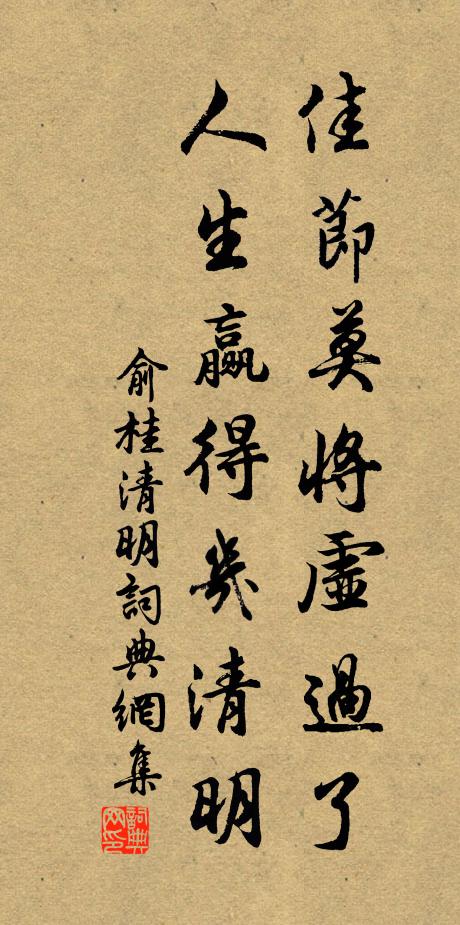 佳節莫將虛過了
人生贏得幾清明
俞桂清明詞典網集
詞典網印